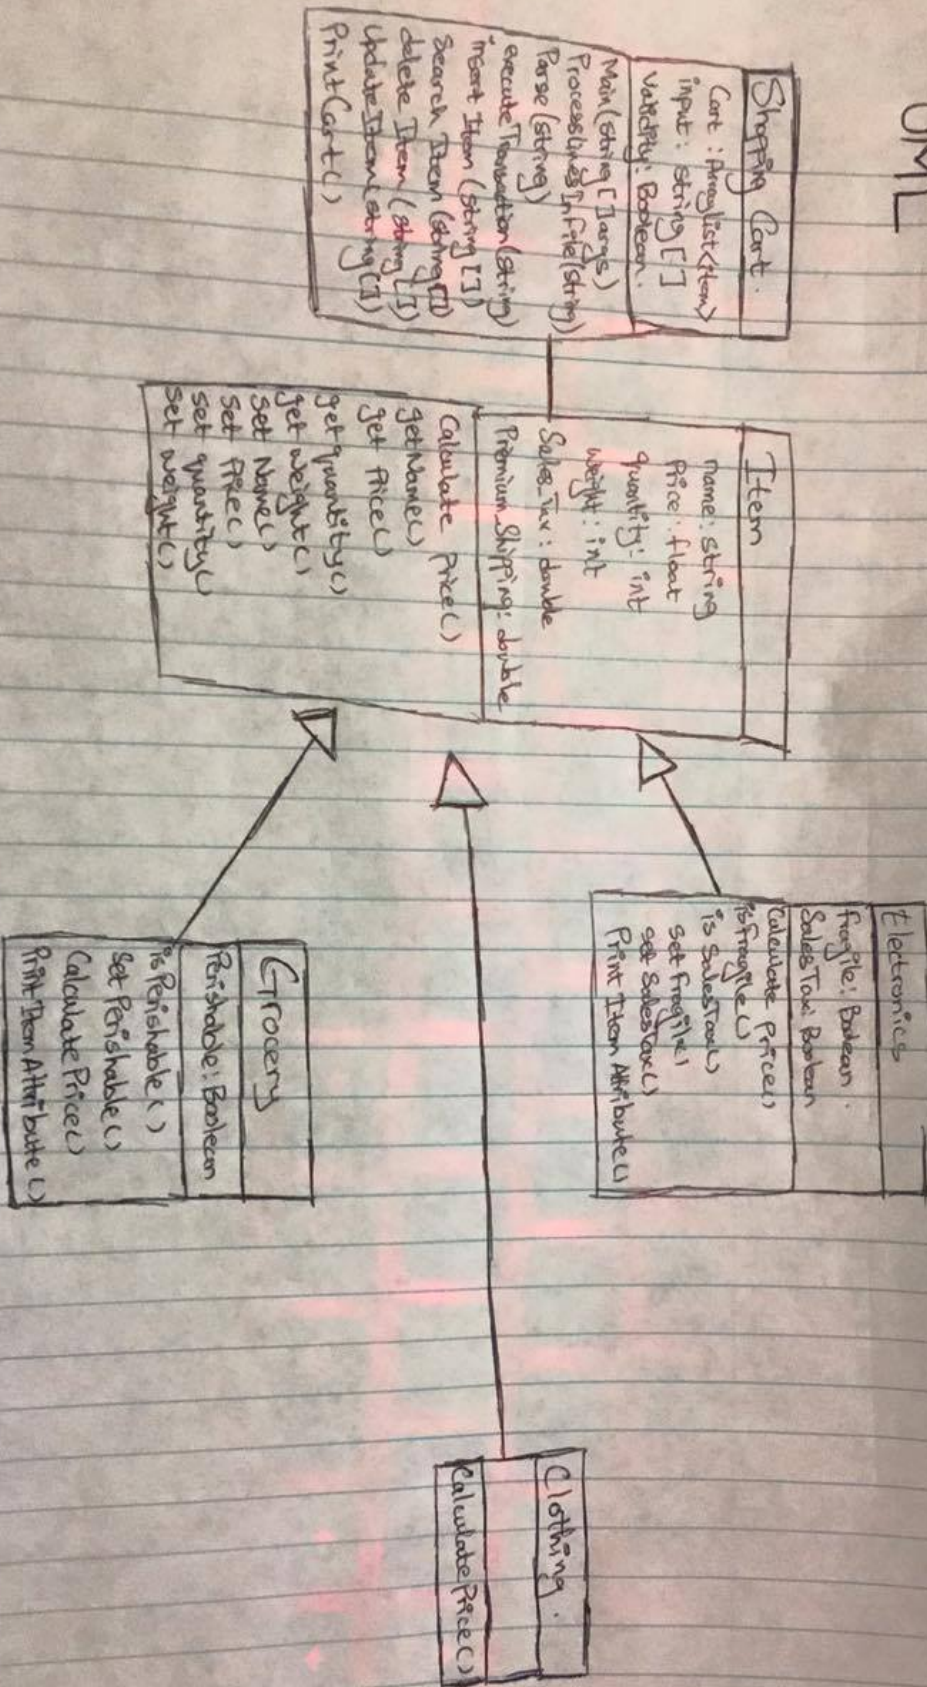 UML
Shopping Cart.
Cart : Arraylist<item>
input : string []
Validity: Boolean.
Main(string []args)
ProcessLinesInFile(string)
Parse (string)
executeTransaction(string)
insert Item (string [])
Search Item (string[])
delete Item (string [])
Update Item (string[])
Print Cart ()
Item
name: string
Price: float
quantity: int
weight: int
Sales_Tax: double
Premium_Shipping: double
Calculate Price()
getName()
get Price()
get quantity()
get weight()
set Name()
set Price()
set quantity()
set weight()
Electronics
fragile: Boolean.
SalesTax: Boolean
Calculate Price()
isfragile()
is SalesTax()
set fragile()
set SalesTax()
Print Item Attribute()
Grocery
Perishable: Boolean
isPerishable()
Set Perishable()
Calculate Price()
Print Item Attribute()
Clothing.
Calculate Price()